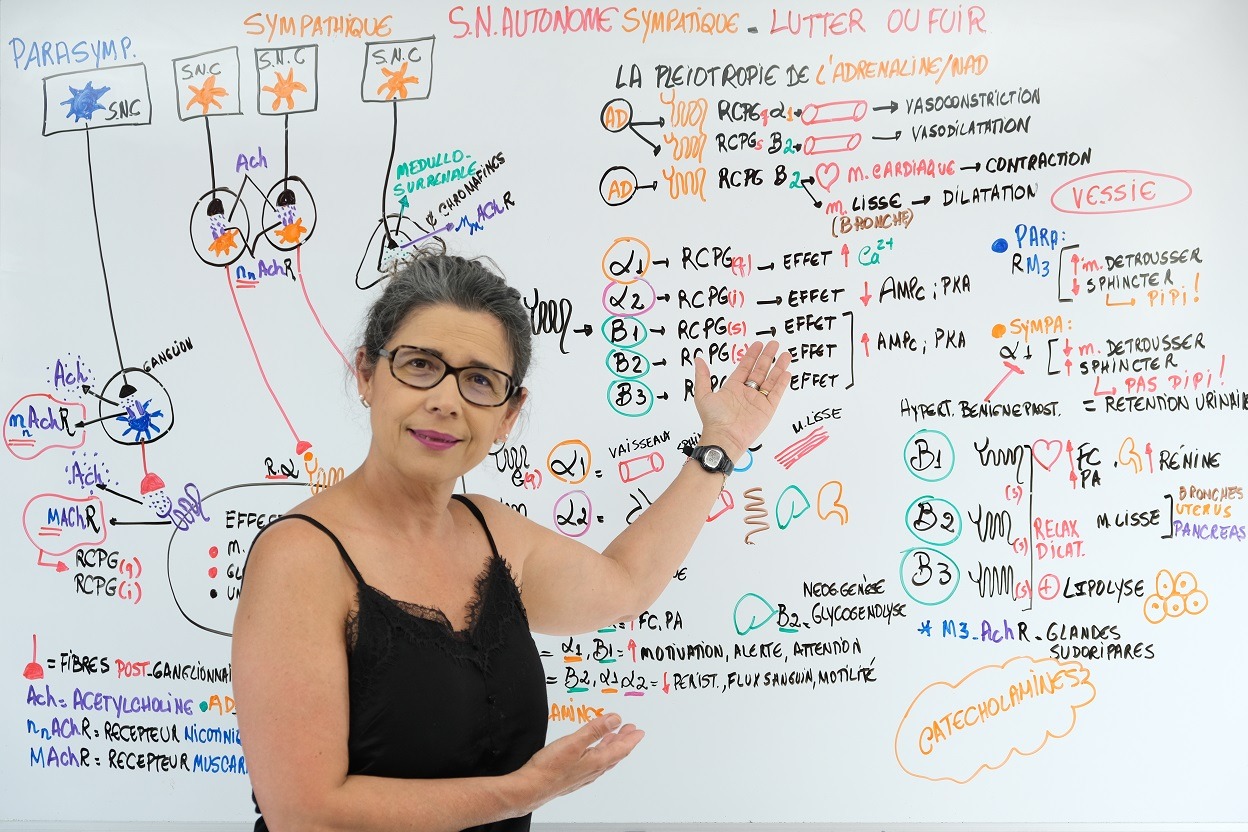 S.N. AUTONOME SYMPATIQUE = LUTTER OU FUIR
PARASYMP.
SYMPATHIQUE
S.N.C
S.N.C
S.N.C
S.N.C
Ach
MEDULLO-
SURRENALE
CHROMAFINES
nnAChR
GANGLION
Ach
nAchR
Ach
MAChR
RCPG(q)
RCPG(i)
R.α
EFFE
• M.
• GL
= FIBRES POST-GANGLIONNAI
Ach = ACETYLCHOLINE • AD
nnAchR = RECEPTEUR NICOTINI
MAchR = RECEPTEUR MUSCAR
LA PLEIOTROPIE DE L'ADRENALINE/NAD
AD RCPGq α1 → VASOCONSTRICTION
RCPGs B2 → VASODILATATION
AD → RCPG B2 → m. CARDIAQUE → CONTRACTION
m. LISSE → DILATATION
(BRONCHE)
α1 → RCPG(q) → EFFET ↑ Ca2+
α2 → RCPG(i) → EFFET ↓ AMPc ; PKA
B1 → RCPG(s) → EFFET
B2 → RCPG(s) EFFET ↑ AMPc ; PKA
B3 → EFFET
(q) α1 = VAISSEAUX M. LISSE
α2 =
FC, PA
B2 = NEOGENÈSE
GLYCOGENOLYSE
= α1, B1 = ↑ MOTIVATION, ALERTE, ATTENTION
= B2, α1 α2 = ↓ PERIST., FLUX SANGUIN, MOTILITÉ
AMINES
VESSIE
• PARA:
RM3
↑ m. DETROUSSER
↓ SPHINCTER
PIPI !
• SYMPA:
α1
↓ m. DETROUSSER
↑ SPHINCTER
PAS PIPI !
HYPERT. BENIGNE PROST. = RETENTION URINAIRE
B1 (s) ↑ FC
↑ PA
↑ RÉNINE
B2 (s) RELAX
DILAT.
M. LISSE
BRONCHES
UTERUS
PANCREAS
B3 (s) + LIPOLYSE
* M3-AchR - GLANDES
SUDORIPARES
CATECHOLAMINES